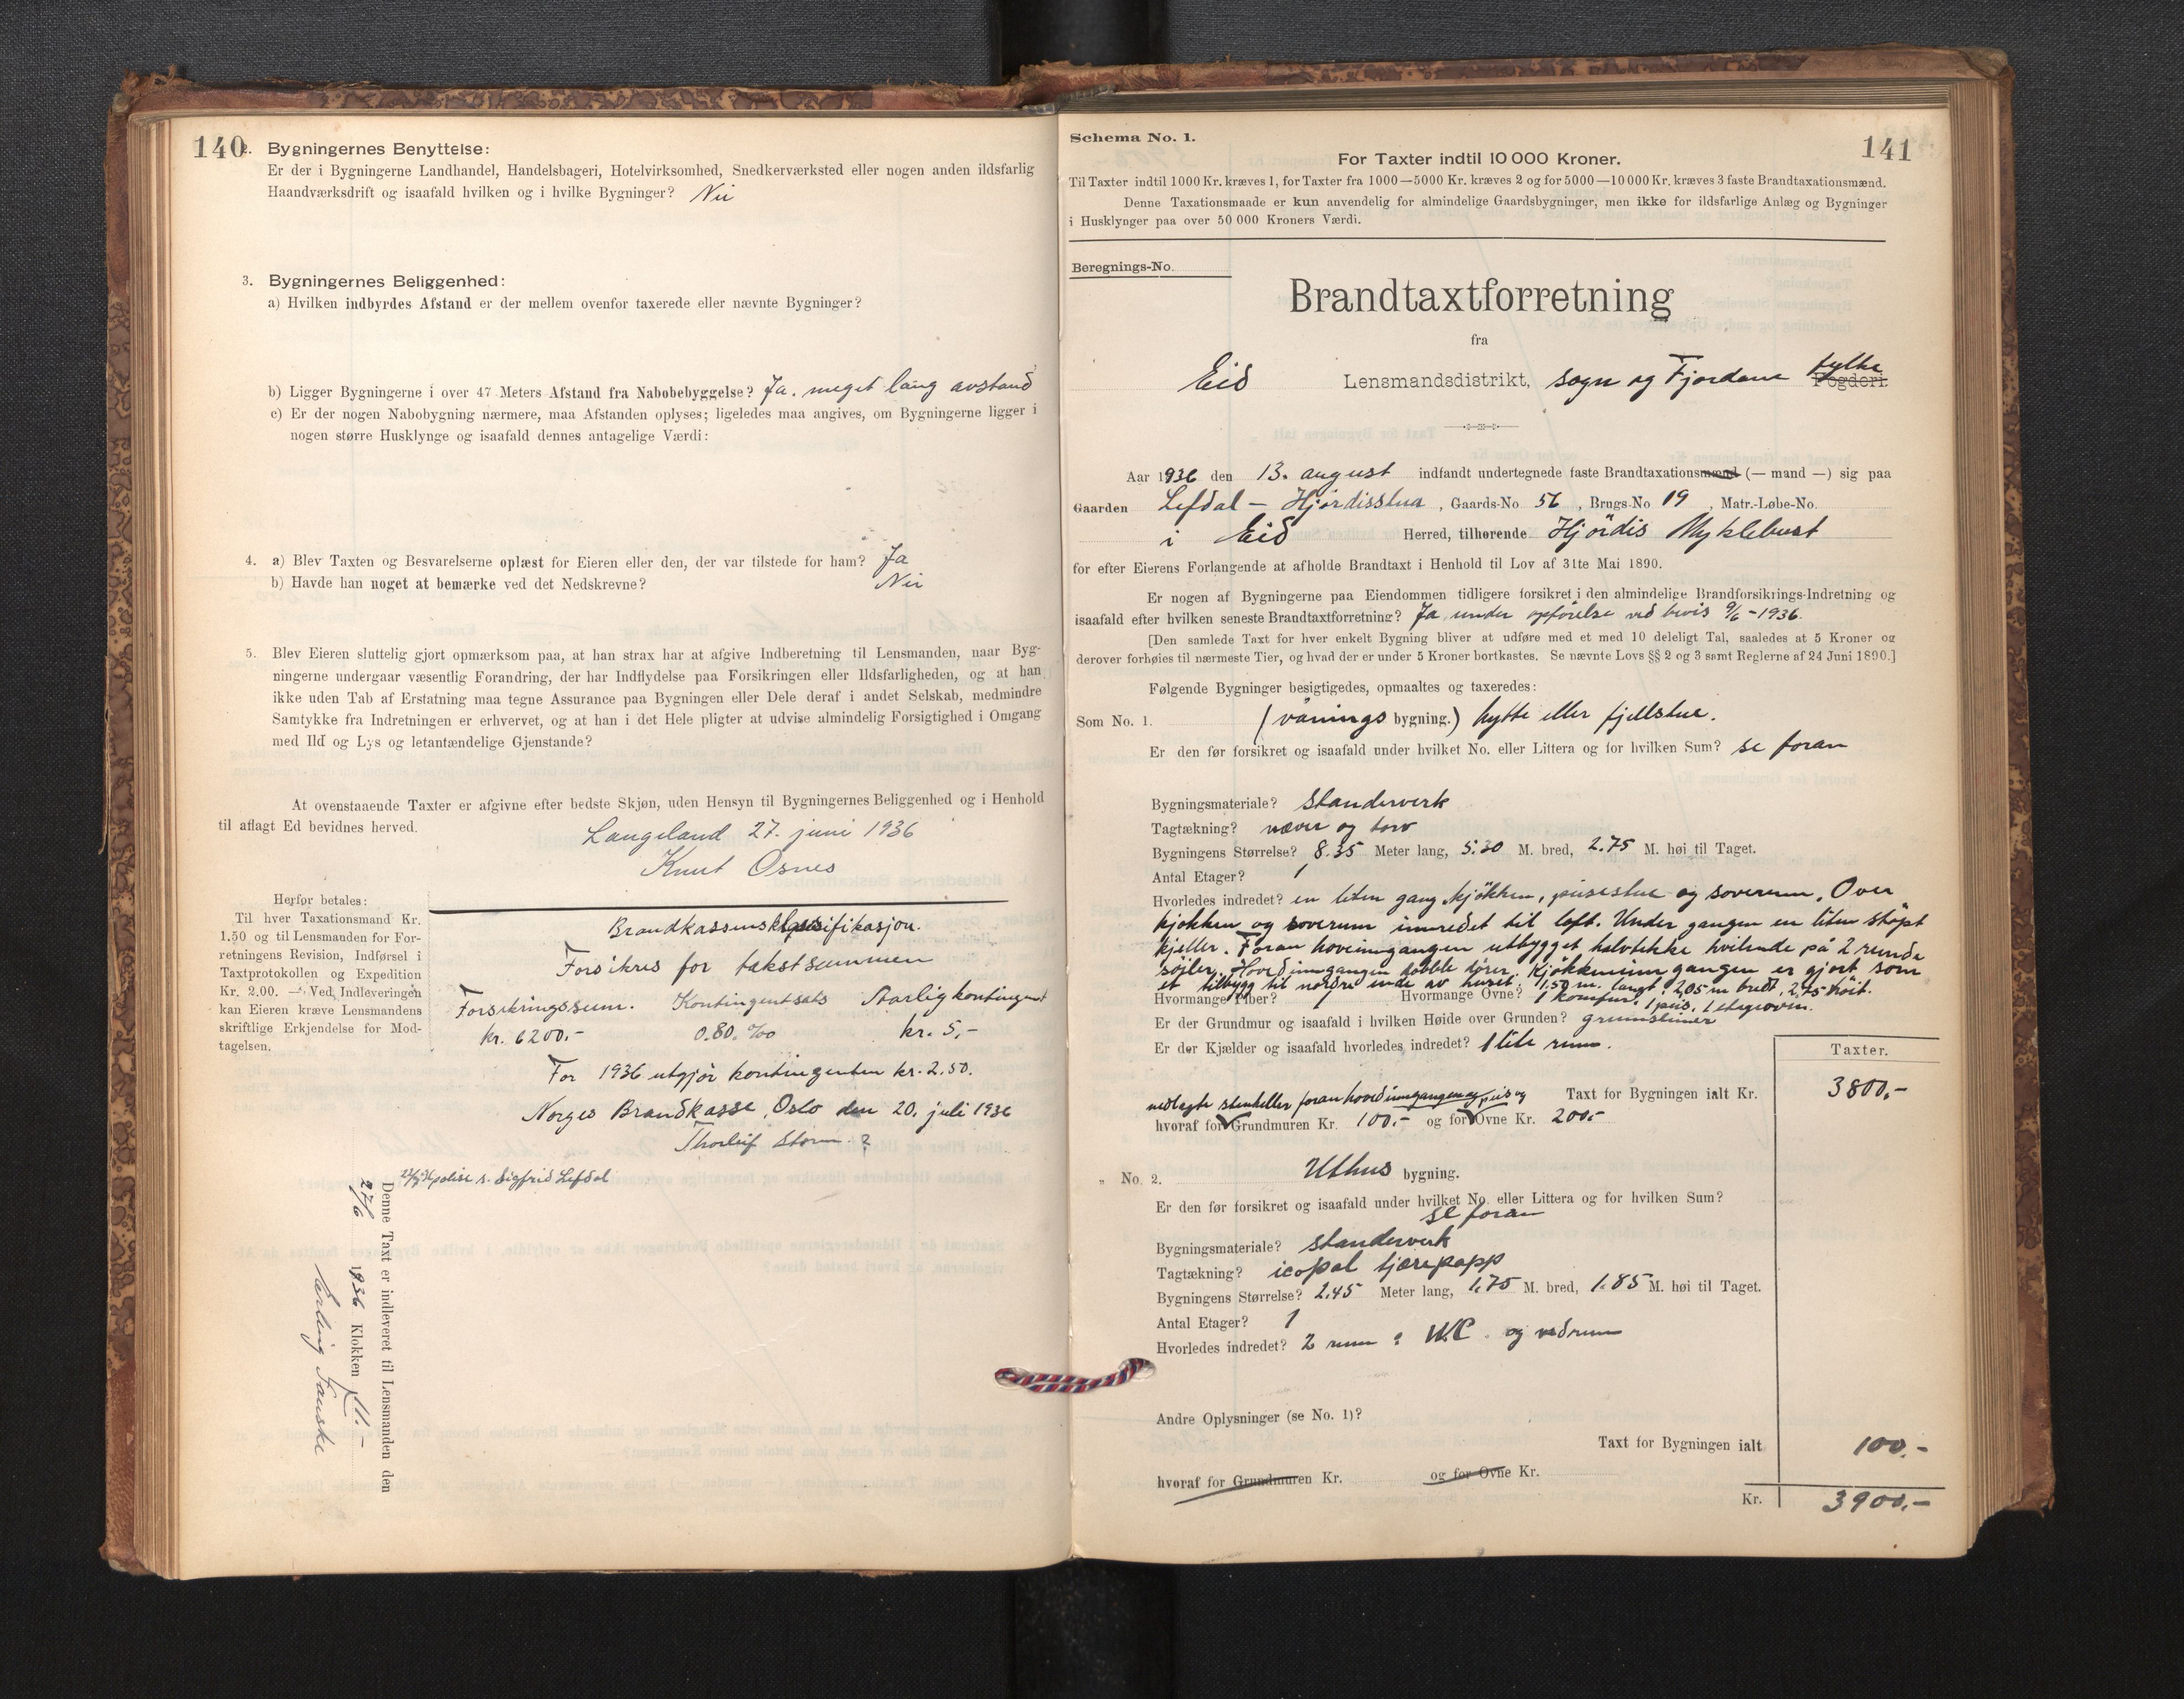 140
2. Bygningernes Benyttelse:
Er der i Bygningerne Landhandel, Handelsbageri, Hotelvirksomhed, Snedkerværksted eller nogen anden ildsfarlig
Haandværksdrift og isaafald hvilken og i hvilke Bygninger? Nei
3. Bygningernes Beliggenhed:
a) Hvilken indbyrdes Afstand er der mellem ovenfor taxerede eller nævnte Bygninger?
b) Ligger Bygningerne i over 47 Meters Afstand fra Nabobebyggelse? Ja. meget lang avstand
c) Er der nogen Nabobygning nærmere, maa Afstanden oplyses; ligeledes maa angives, om Bygningerne ligger i
nogen større Husklynge og isaafald dennes antagelige Værdi:
4. a) Blev Taxten og Besvarelserne oplæst for Eieren eller den, der var tilstede for ham? Ja
b) Havde han noget at bemærke ved det Nedskrevne? Nei
5. Blev Eieren sluttelig gjort opmærksom paa, at han strax har at afgive Indberetning til Lensmanden, naar Byg-
ningerne undergaar væsentlig Forandring, der har Indflydelse paa Forsikringen eller Ildsfarligheden, og at han
ikke uden Tab af Erstatning maa tegne Assurance paa Bygningen eller Dele deraf i andet Selskab, medmindre
Samtykke fra Indretningen er erhvervet, og at han i det Hele pligter at udvise almindelig Forsigtighed i Omgang
med Ild og Lys og letantændelige Gjenstande?
At ovenstaaende Taxter er afgivne efter bedste Skjøn, uden Hensyn til Bygningernes Beliggenhed og i Henhold
til aflagt Ed bevidnes herved.
Langeland 27. juni 1936
Knut Osnes
Herfor betales:
Til hver Taxationsmand Kr.
1.50 og til Lensmanden for For-
retningens Revision, Indførsel i
Taxtprotokollen og Expedition
Kr. 2,00. — Ved Indleveringen
kan Eieren kræve Lensmandens
skriftlige Erkjendelse for Mod-
tagelsen.
Brandkassens klassifikasjon.
Forsikres for takstsummen
Forsikringssum. Kontingentsats Aarlig kontingent
kr. 6200.- 0.80. ‰ kr. 5,-
For 1936 utgjør kontingenten kr. 2.50.
Norges Brandkasse, Oslo den 20. juli 1936
Thorleif Storm. ?
polise s. Sigfrid Lefdal
Denne Taxt er indleveret til Lensmanden den
27/6 1936 Klokken 11.-
Erling
Schema No. 1.
141
For Taxter indtil 10 000 Kroner.
Til Taxter indtil 1000 Kr. kræves 1, for Taxter fra 1000—5000 Kr. kræves 2 og for 5000—10 000 Kr. kræves 3 faste Brandtaxationsmænd.
Denne Taxationsmaade er kun anvendelig for almindelige Gaardsbygninger, men ikke for ildsfarlige Anlæg og Bygninger
i Husklynger paa over 50 000 Kroners Værdi.
Beregnings-No.
Brandtaxtforretning
fra
Eid Lensmandsdistrikt, sogn og Fjordane fylke Fogderi.
Aar 1936 den 13. august indfandt undertegnede faste Brandtaxationsmænd (— mand —) sig paa
Gaarden Lefdal - Hjørdisstua, Gaards-No 56, Brugs-No 19, Matr.-Løbe-No.
i Eid Herred, tilhørende Hjördis Myklebust
for efter Eierens Forlangende at afholde Brandtaxt i Henhold til Lov af 31te Mai 1890.
Er nogen af Bygningerne paa Eiendommen tidligere forsikret i den almindelige Brandforsikrings-Indretning og
isaafald efter hvilken seneste Brandtaxtforretning? Ja under opførelse ved bevis 9/6 - 1936.
[Den samlede Taxt for hver enkelt Bygning bliver at udføre med et med 10 deleligt Tal, saaledes at 5 Kroner og
derover forhøies til nærmeste Tier, og hvad der er under 5 Kroner bortkastes. Se nævnte Lovs §§ 2 og 3 samt Reglerne af 24 Juni 1890.]
Følgende Bygninger besigtigedes, opmaaltes og taxeredes:
Som No. 1. (vånings bygning.) hytte eller fjellstue.
Er den før forsikret og isaafald under hvilket No. eller Littera og for hvilken Sum? se foran
Bygningsmateriale? standerverk
Tagtækning? næver og torv
Bygningens Størrelse? 8.35 Meter lang, 5.30 M. bred, 2.75 M. høi til Taget.
Antal Etager? 1
Hvorledes indredet? en liten gang, kjøkken, peisestue og soverum. Over
kjøkken og soverum innredet til loft. Under gangen en liten støpt
kjeller. Foran hovedinngangen utbygget halvtekke hvilende på 2 runde
søiler. Hovedinngangen dobble dører. Kjøkkeninngangen er gjort som
et tilbygg til nordre ende av huset. 1,50 m. langt, 2,05 m bredt, 2,75 høit.
Hvormange Piber? Hvormange Ovne? 1 komfur, 1 peis, 1 etageovn.
Er der Grundmur og isaafald i hvilken Høide over Grunden? grunnsteiner
Er der Kjælder og isaafald hvorledes indredet? 1 lite rum.
Taxter.
nedlagte stenheller foran hovedinngangen og peis og Taxt for Bygningen ialt Kr. 3800,-
hvoraf for Grundmuren Kr. 100.- og for Ovne Kr. 200.-
„ No. 2. Uthus bygning.
Er den før forsikret og isaafald under hvilket No. eller Littera og for hvilken Sum?
se foran
Bygningsmateriale? standerverk
Tagtækning? icopal tjærepapp
Bygningens Størrelse? 2.45 Meter lang, 1.75 M. bred, 1.85 M. høi til Taget.
Antal Etager? 1
Hvorledes indredet? 2 rum : W.C. og vedrum
Andre Oplysninger (se No. 1)?
Taxt for Bygningen ialt 100.-
hvoraf for Grundmuren Kr. og for Ovne Kr.
Kr. 3900.-